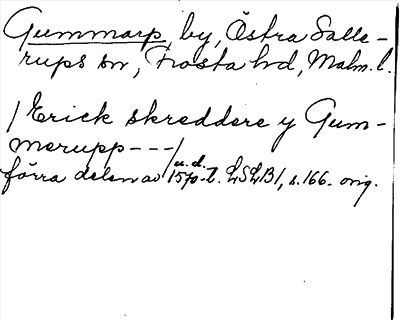 Gummarp, by, Östra Salle-
rups sn, Frosta hd, Malm. l.
/ Erick skreddere y Gum-
merupp --- /
u. d.
förra delen av 1570-t. LSLB1, s. 166. orig.